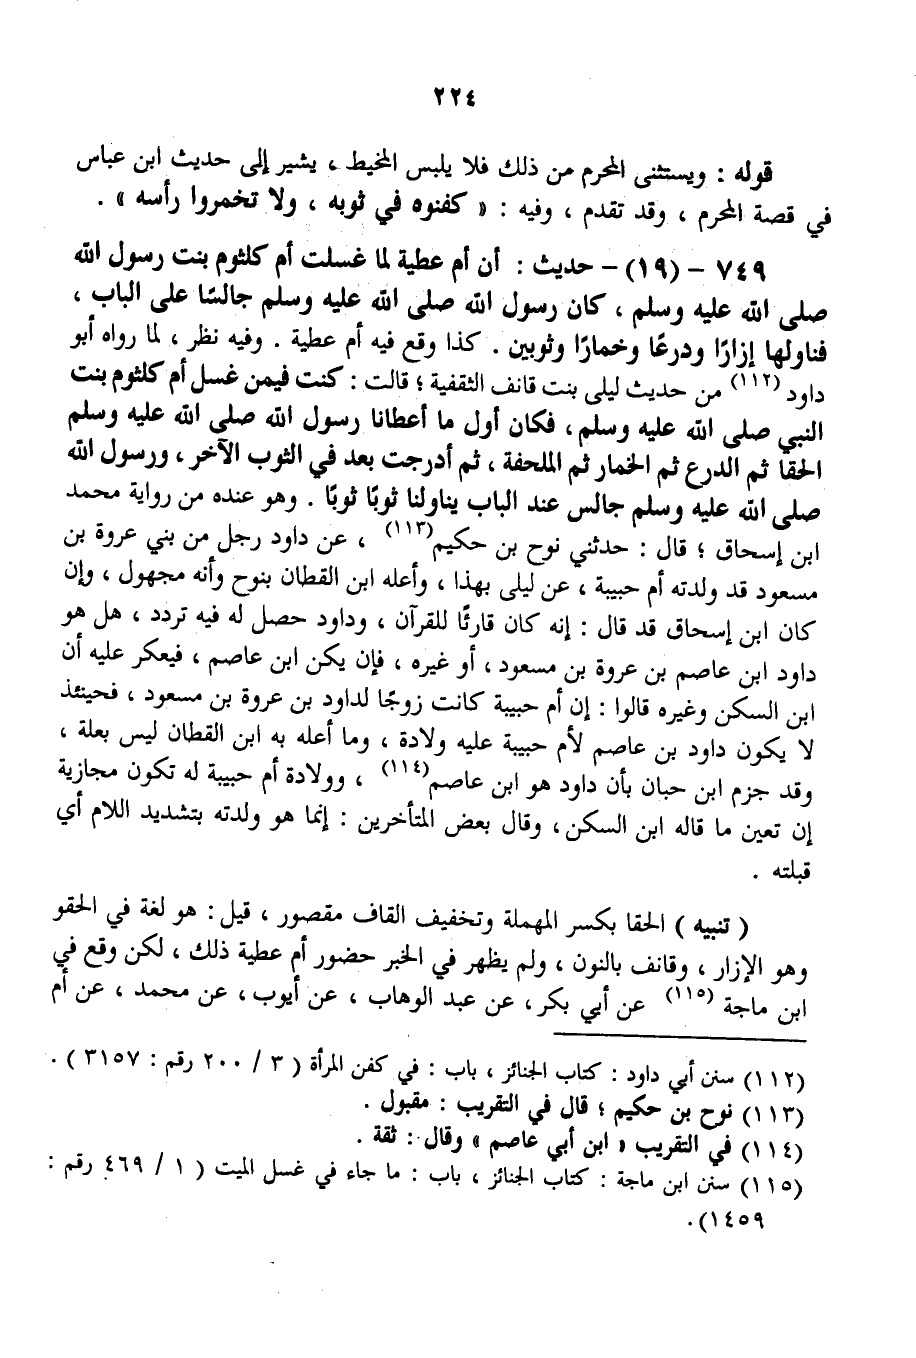 ٢٢٤
قوله : ويستثنى المحرم من ذلك فلا يلبس المخيط ، يشير إلى حديث ابن عباس
في قصة المحرم ، وقد تقدم ، وفيه : « كفنوه في ثوبه ، ولا تخمروا رأسه » .
٧٤٩ - (١٩) - حديث : أن أم عطية لما غسلت أم كلثوم بنت رسول الله
صلى الله عليه وسلم ، كان رسول الله صلى الله عليه وسلم جالسًا على الباب ،
فناولها إزارًا ودرعًا وخمارًا وثوبين . كذا وقع فيه أم عطية . وفيه نظر ، لما رواه أبو
داود (١١٢) من حديث ليلى بنت قانف الثقفية ؛ قالت : كنت فيمن غسل أم كلثوم بنت
النبي صلى الله عليه وسلم ، فكان أول ما أعطانا رسول الله صلى الله عليه وسلم
الحقا ثم الدرع ثم الخمار ثم الملحفة ، ثم أدرجت بعد في الثوب الآخر ، ورسول الله
صلى الله عليه وسلم جالس عند الباب يناولنا ثوبًا ثوبًا . وهو عنده من رواية محمد
ابن إسحاق ؛ قال : حدثني نوح بن حكيم(١١٣) ، عن داود رجل من بني عروة بن
مسعود قد ولدته أم حبيبة ، عن ليلى بهذا ، وأعله ابن القطان بنوح وأنه مجهول ، وإن
كان ابن إسحاق قد قال : إنه كان قارئًا للقرآن ، وداود حصل له فيه تردد ، هل هو
داود ابن عاصم بن عروة بن مسعود ، أو غيره ، فإن يكن ابن عاصم ، فيعكر عليه أن
ابن السكن وغيره قالوا : إن أم حبيبة كانت زوجًا لداود بن عروة بن مسعود ، فحينئذ
لا يكون داود بن عاصم لأم حبيبة عليه ولادة ، وما أعله به ابن القطان ليس بعلة ،
وقد جزم ابن حبان بأن داود هو ابن عاصم(١١٤) ، وولادة أم حبيبة له تكون مجازية
إن تعين ما قاله ابن السكن ، وقال بعض المتأخرين : إنما هو ولدته بتشديد اللام أي
قبلته .
( تنبيه ) الحقا بكسر المهملة وتخفيف القاف مقصور ، قيل : هو لغة في الحقو
وهو الإزار ، وقانف بالنون ، ولم يظهر في الخبر حضور أم عطية ذلك ، لكن وقع في
ابن ماجة (١١٥) عن أبي بكر ، عن عبد الوهاب ، عن أيوب ، عن محمد ، عن أم
(١١٢) سنن أبي داود : كتاب الجنائز ، باب : في كفن المرأة ( ٣ / ٢٠٠ رقم : ٣١٥٧ ) .
(١١٣) نوح بن حكيم ؛ قال في التقريب : مقبول .
(١١٤) في التقريب « ابن أبي عاصم » وقال : ثقة .
(١١٥) سنن ابن ماجة : كتاب الجنائز ، باب : ما جاء في غسل الميت ( ١ / ٤٦٩ رقم :
١٤٥٩).